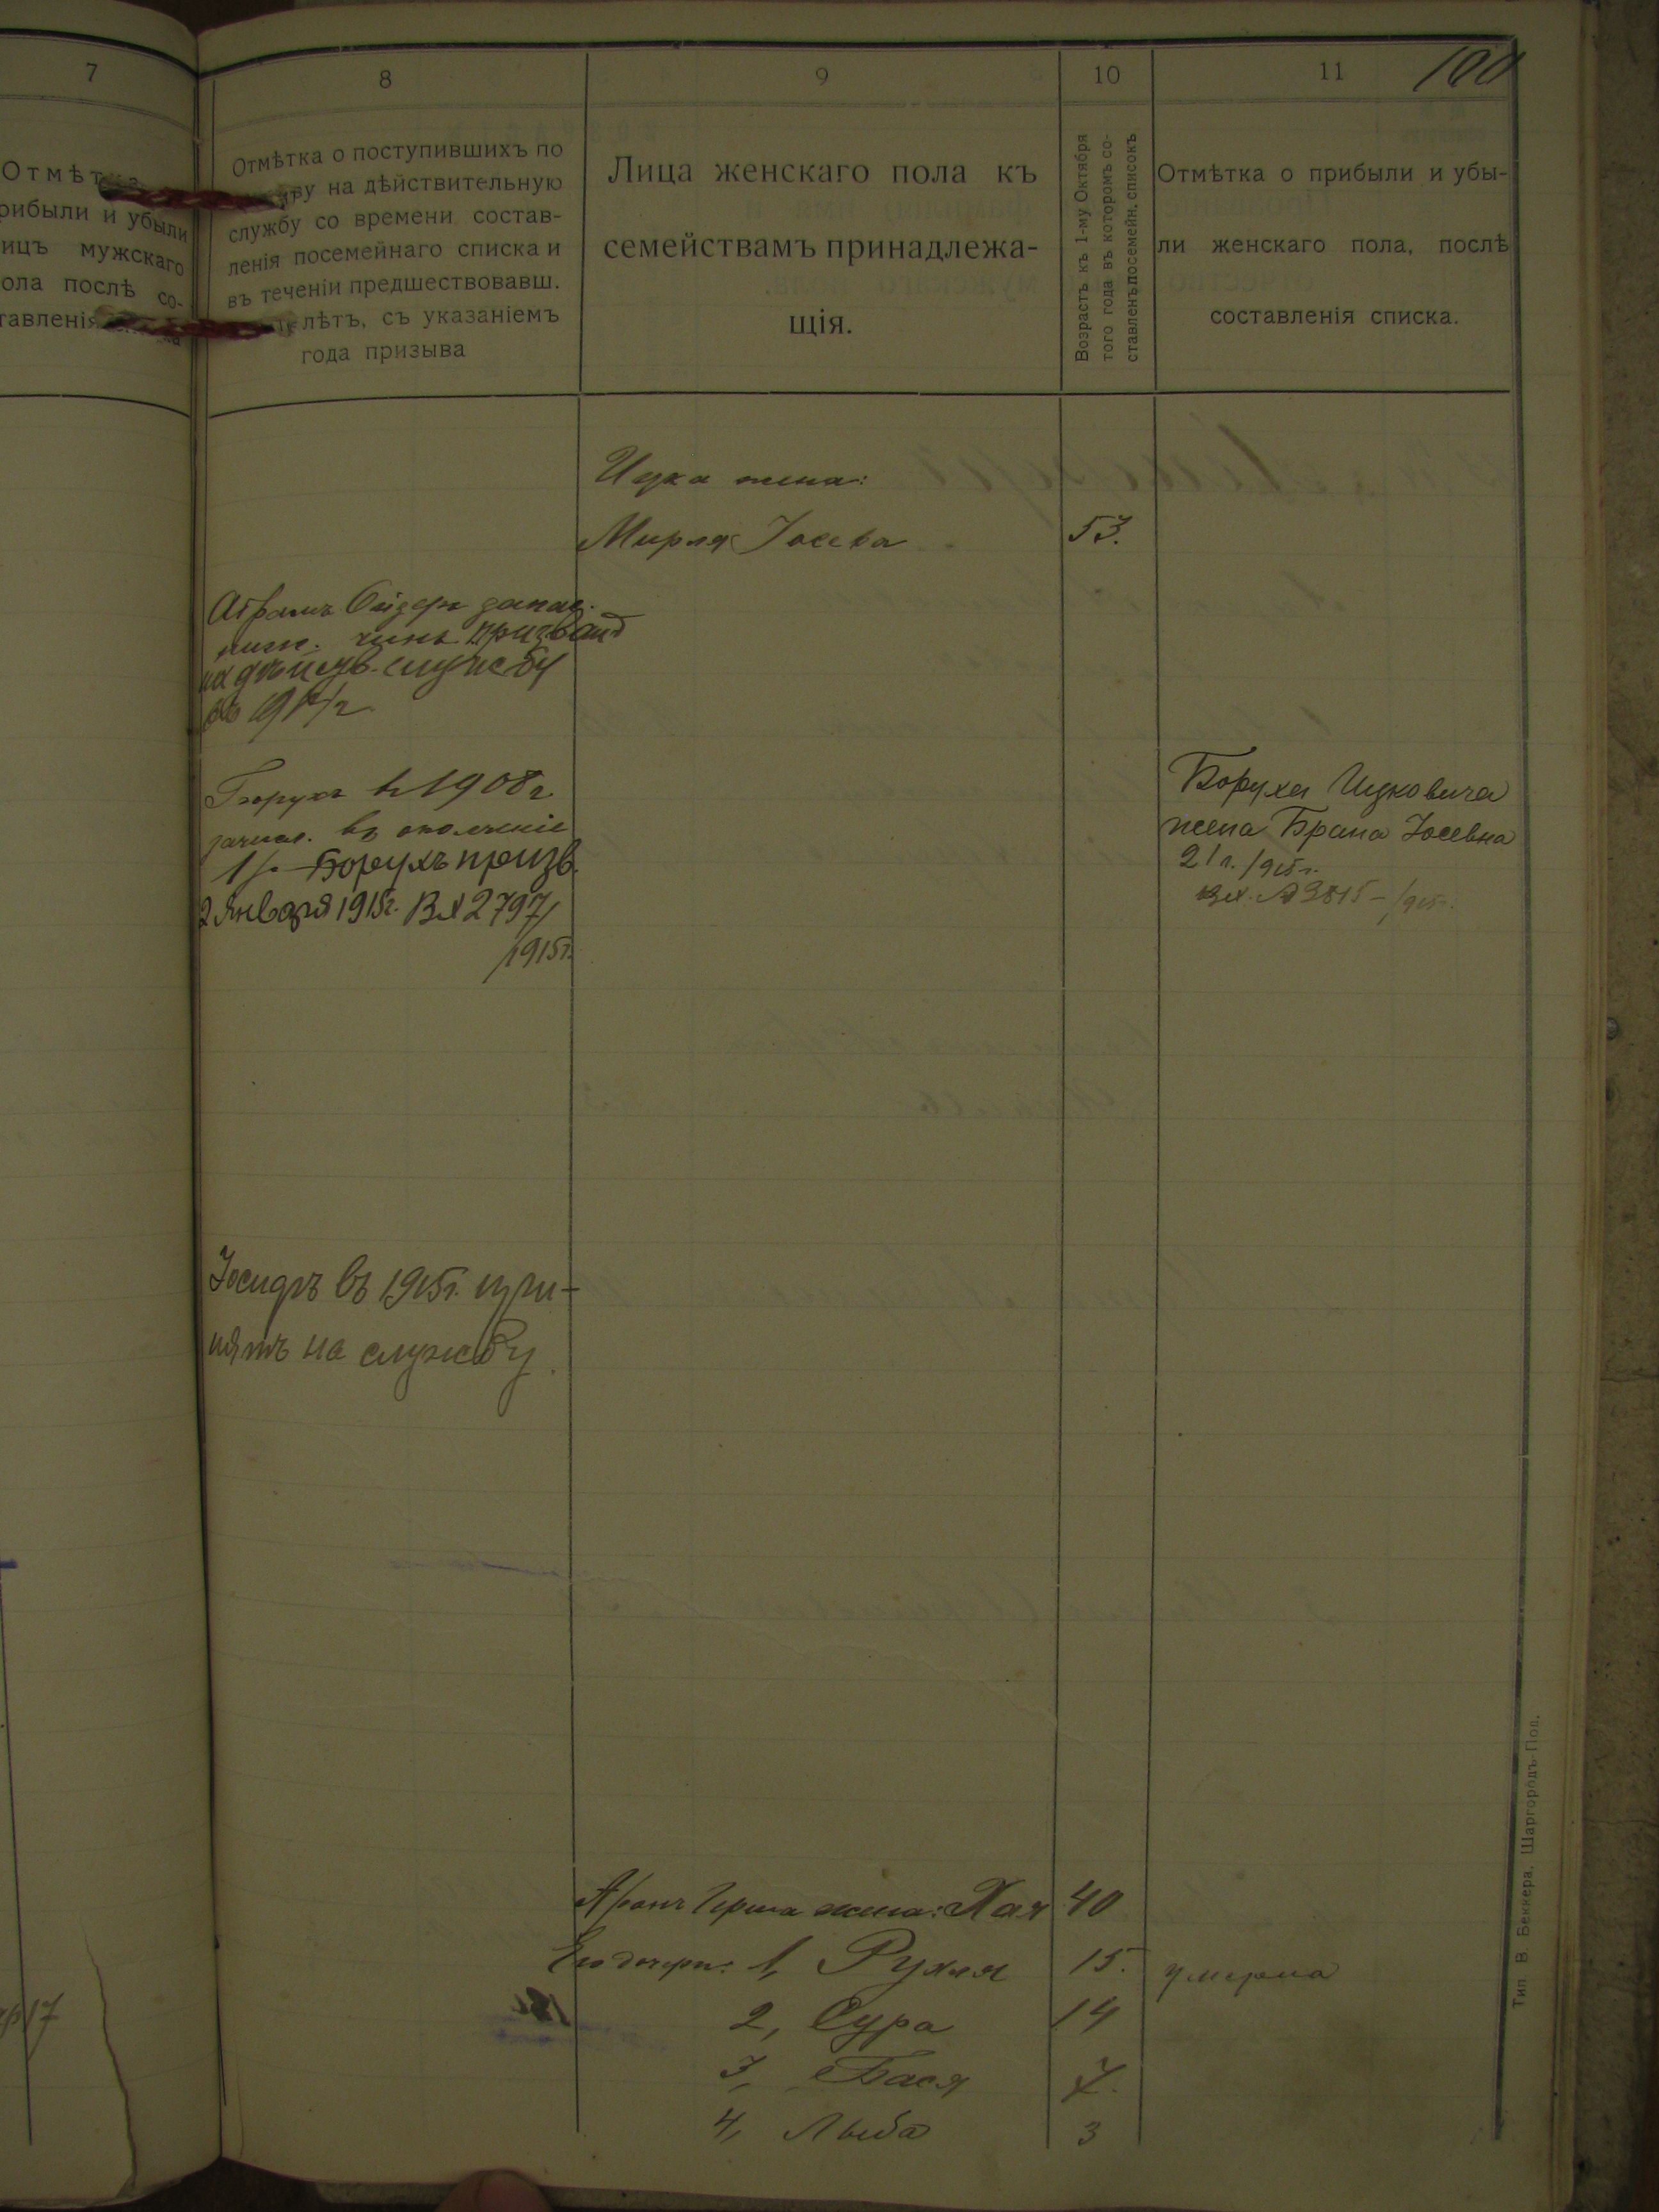 7
Отмѣт
рибыли и убыли
ицъ мужскаго
ола послѣ со-
тавленія
17
8
Отмѣтка о поступившихъ по
ву на дѣйствительную
службу со времени состав-
ленія посемейнаго списка и
въ теченіи предшествовавш.
лѣтъ, съ указаніемъ
года призыва
9
Лица женскаго пола къ
семействамъ принадлежа-
щія.
10
Возрастъ къ 1-му Октября
того года въ которомъ со-
ставленъ посемейн. списокъ
11
100
Отмѣтка о прибыли и убы-
ли женскаго пола, послѣ
составленія списка.
Ицка жена:
Мирля Іосева 53.
Абрамъ запас.
ниж. чинъ призванъ
на дѣйств. службу
въ 191 г
Борухъ в 1908 г
зачисл. въ ополченіе
1 р. Борухъ призв.
2 Января 1915г. Вх 2797/
/1915г.
Боруха Ицковича
жена Брана Іосевна
21 л. /915г.
Вх. № 3815 - /915г.
Іосифъ въ 1915г. при-
нятъ на службу.
Аронъ Герша жена: Хая 40
Его дочери: 1, Рухля 15. умерла
2, Сура 14
3, Бася 7.
4, Лыба 3
Тип. В. Беккера, Шаргородъ-Под.